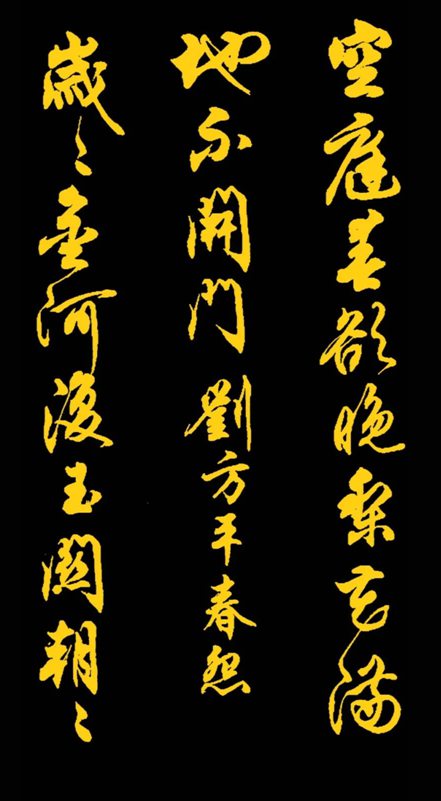 空庭春欲晚梨花滿
地不開門 劉方平春怨
歲〻金河復玉關朝〻